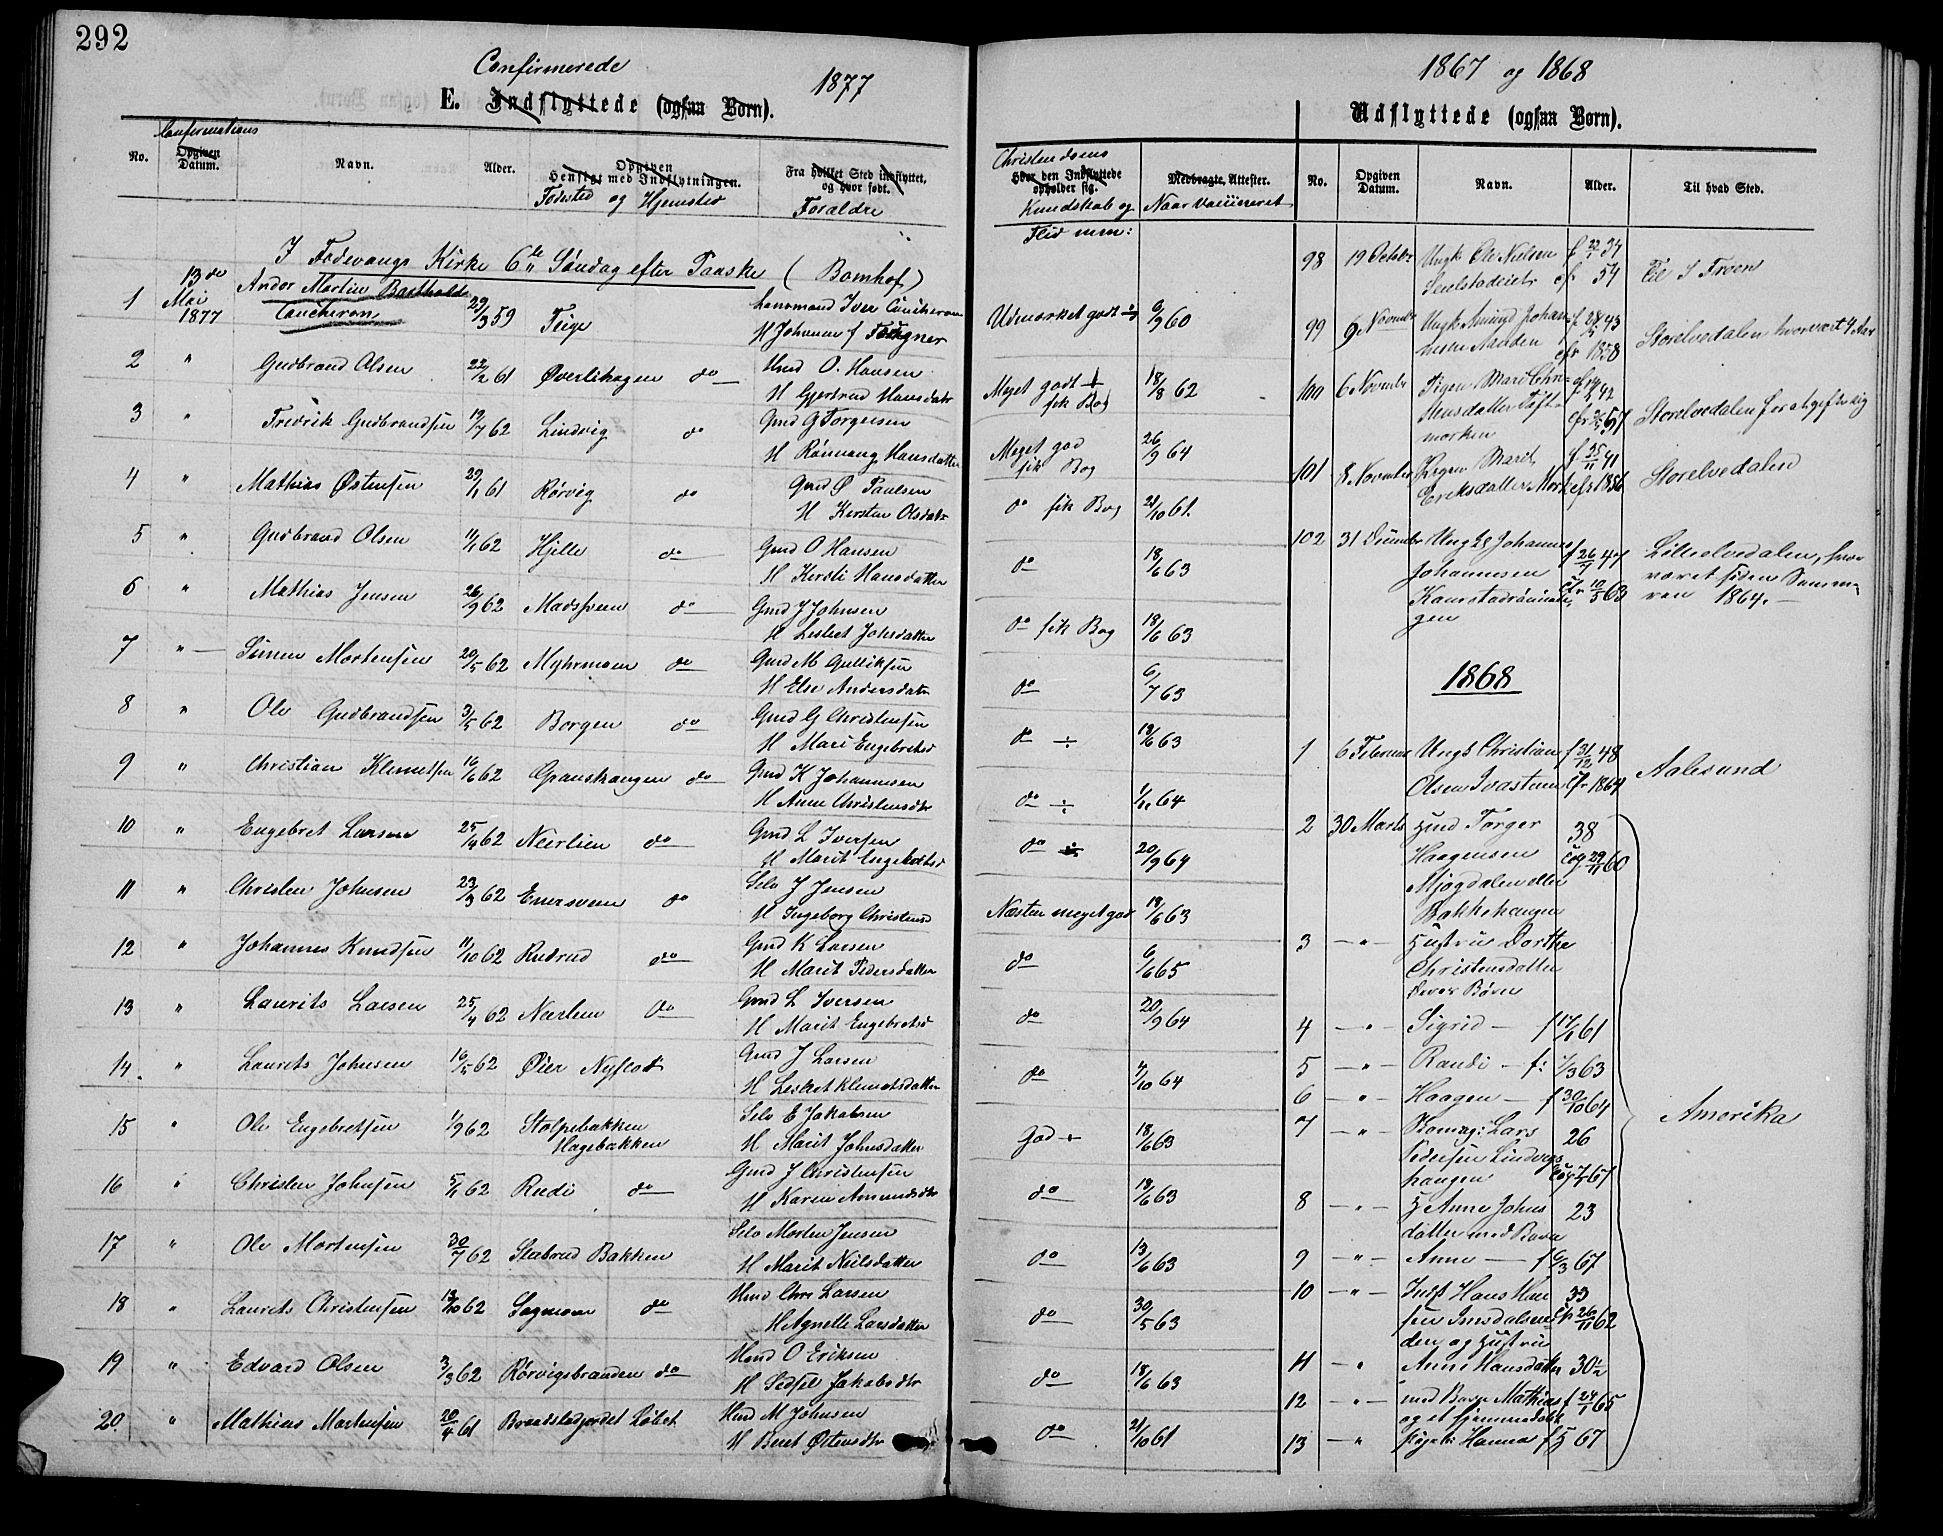 292
Confirmerede 1877
E. Indflyttede (ogsaa Børn).
Confirmations
No. Opgiven Datum. Navn. Alder. Opgiven Hensigt med Indflytningen. Fra hvilket Sted indflyttet, og hvor født.
Fødested og Hjemsted Forældre
I Fodevangs Kirke 6te Søndag efter Paaske (Bomhof)
13de Andor Martin Barthold
1 Mai 1877 29/3 59 Teige
H Johanne f Fougner
2 " Gudbrand Olsen 22/2 61 Øverlihagen do Hmd O. Hansen
H Gjertrud Hansdatr
3 " Fredrik Gudbrandsen 19/7 62 Lindvig do Gmd G Torgersen
H Rønnaug Hansdatter
4 " Mathias Østensen 29/1 61 Rørvig do Gmd Ø Paulsen
H Kersten Olsdatr
5 " Gudbrand Olsen 11/1 62 Hjelle do Gmd O Hansen
H Kersti Hansdatter
6 " Mathias Jensen 26/9 62 do Gmd J Johnsen
H Lisbet Johsdatter
7 " Simen Mortensen 20/5 62 Myhrmoen do Gmd M Gulliksen
H Else Andersdatr
8 " Ole Gudbrandsen 3/5 62 Borgen do Gmd G Christensen
H Mari Engebretsd
9 " Christian Klemetsen 16/6 62 Granshaugen do Gmd K Johannesen
H Anne Christensdtr
10 " Engebret Larsen 25/4 62 Neerlien do Gmd L Iversen
H Marit Engebretsd
11 " Christen Johnsen 23/3 62 do Selv J Jensen
H Ingeborg Christensd
12 " Johannes Knudsen 11/10 62 Rudrud do Gmd K Larsen
H Marit Pedersdatter
13 " Laurits Larsen 25/4 62 Nerlien do Gmd L Iversen
H Marit Engebretsd
14. " Laurits Johnsen 16/5 62 Øier Nyflot Gmd J Larsen
H Lisbet Klemetsdatter
15 " Ole Engebretsen 1/9 62 Stolpebakken Selv E Jakobsen
Hagebakken H Marit Johnsdatter
16 " Christen Johnsen 5/1 62 Rudi do Gmd J Christensen
H Karen Amundsdtr
17 " Ole Mortensen 30/7 62 Stabrud Bakken Selv Morten Jensen
H Marit Neilsdatter
18 " Laurits Christensen 13/10 62 Sagmoen do Hmd Chr. Larsen
H Agnette Larsdatter
19 " Edvard Olsen 3/3 62 Rørvigsbraaden do Hmd O Eriksen
H Sedsel Jakobsdtr
20. " Mathias Mortensen 20/4 61 Hmd M Johnsen
H Berit Østensdtr
Christendoms
Hvor den Indflyttede opholder sig. Medbragte Attester.
Kundskab og Naar Vaccineret
Flid m.m:
Udmærket godt 6/9 60
Meget godt 18/8 62
fik Bog
Meget god 26/9 64
fik Bog
do fik Bog 21/10 61.
do 18/6 63
do fik Bog 18/6 63
do 6/7 63
do ÷ 18/6 63
do ÷ 64
do 20/9 64
Næsten meget god 18/6 63
do 6/6 65
do 20/9 64
do 4/10 64
God 18/6 63
do 18/6 63
do 13/6 63
do 30/5 63
do 18/6 63
do 21/10 61
1867 og 1868
Udflyttede (ogsaa Børn).
No. Opgiven Datum. Navn. Alder. Til hvad Sted.
98 19 Octobr Ungk Ole Nielsen 37
54 Til S Froen
99 9 Novembr Ungk Amund Johan- 43
nesen 1858 Storelvedalen, hvor været 4 Aar
100 6 Novembr Pigen Mari Chri- 42
stensdatter Toft- 57 Storelvedalen for at gifte sig
morken
101 8 November Pigen Marit f 25/11 41
Eriksdatter Mork cfr 1856 Storelvedalen
102 31 Decembr Ungk Johannes f 26/7 47 Lilleelvedalen, hvor
Johannesen Cfr 10/5 63 været siden Somme-
ren 1864.
gen
1868
1 6 Februar Ungk Christian f 31/12 48 Aalesund
Olsen Cfr 1864
2 30 Marts Hmd Torger 38
Haagensen 60
Mjogdalen eller
Bakkehaugen
3 — " — Hustru Dorthe
Christensdatter
Deres Børn
4 — " — Sigrid — f 61
5 — " — Randi — f: 1/3 63
6 — " — Haagen — f 30/10 64
7 — " — Lars 26
Pedersen Lindvigs
haugen 67
8 — " — H Anne Johns 23
datter med Barn
9 — " — Anne — f 6/3 67
Amerika
10 — " — Indst Hans Han 33
sen Imsdalsen 62
den og Hustru
11 — " Anne Hansdatter 30½
12 — " — med Børn Mathias f 24/1 65
13 — " Hanna f 67